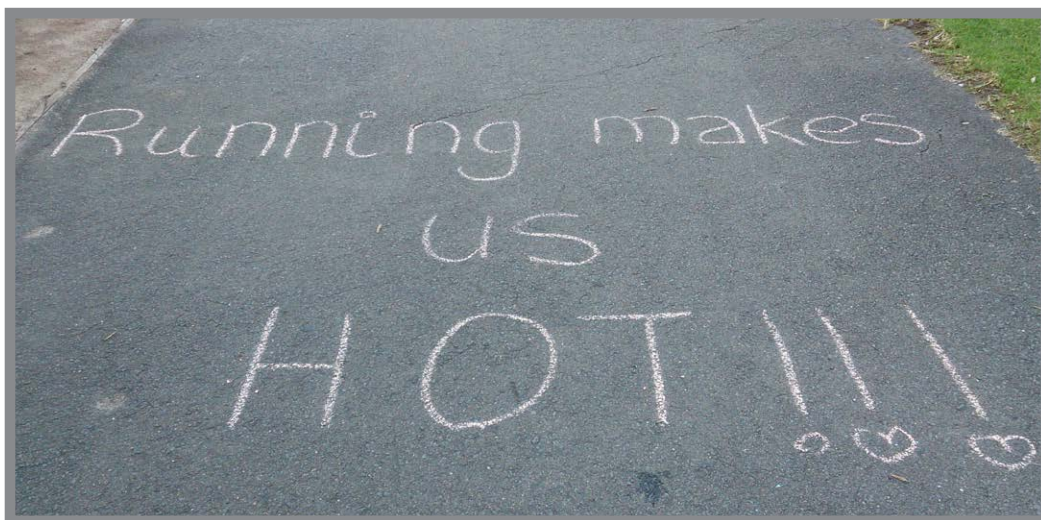 Running makes
us
HOT!!!